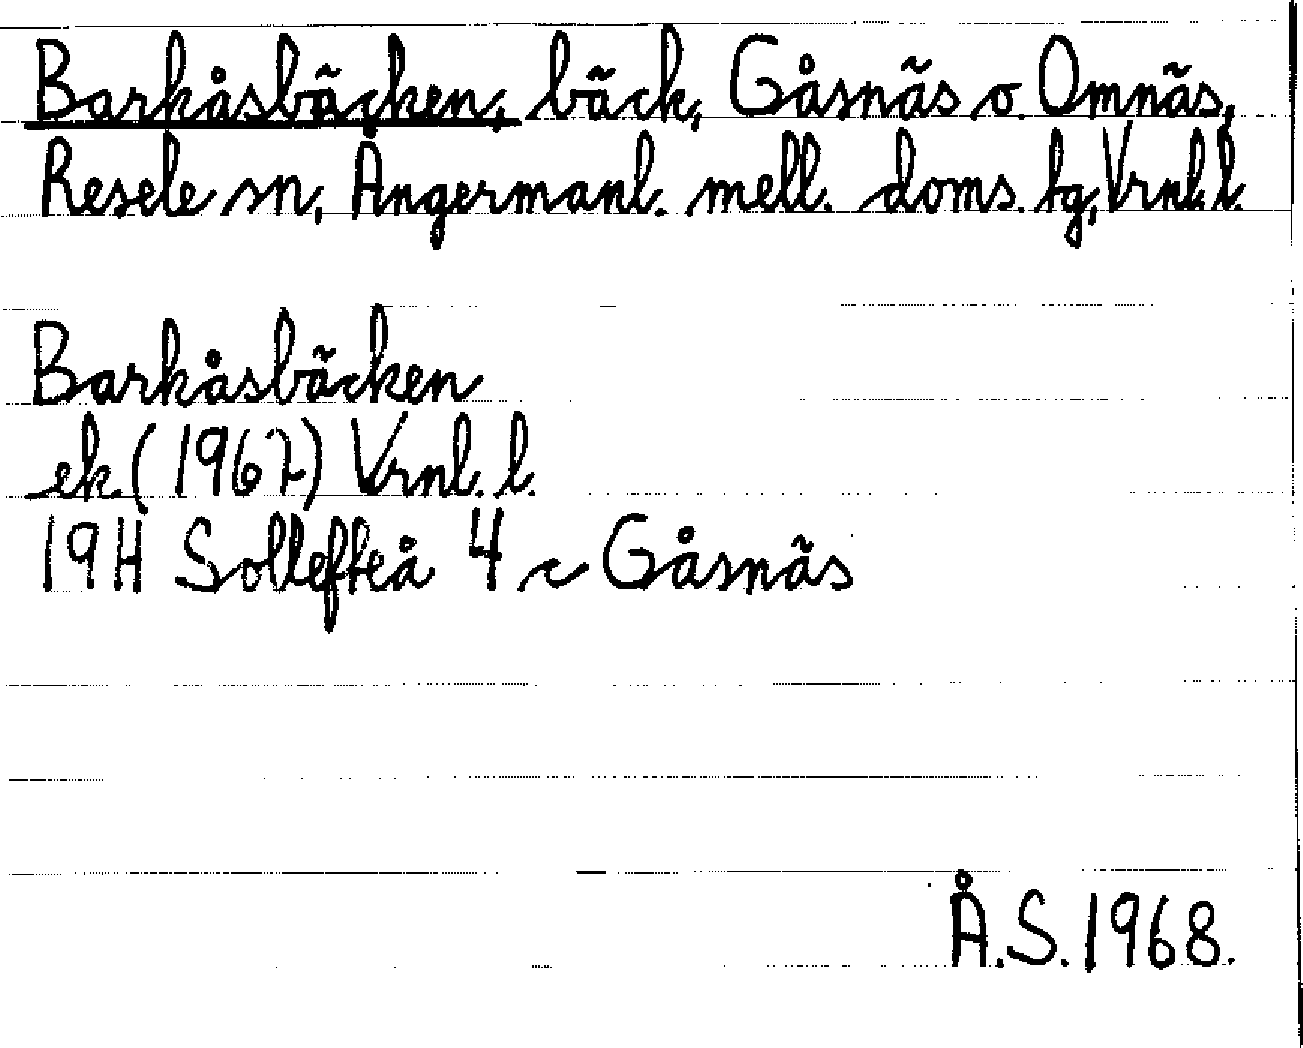 Barkåsbäcken, bäck, Gåsnäs o. Omnäs,
Resele sn, Ångermanl. mell. doms. tg, Vrnl. l.
Barkåsbäcken
ek. (1967) Vrnl. l.
19H Sollefteå 4 c Gåsnäs
Å.S. 1968.